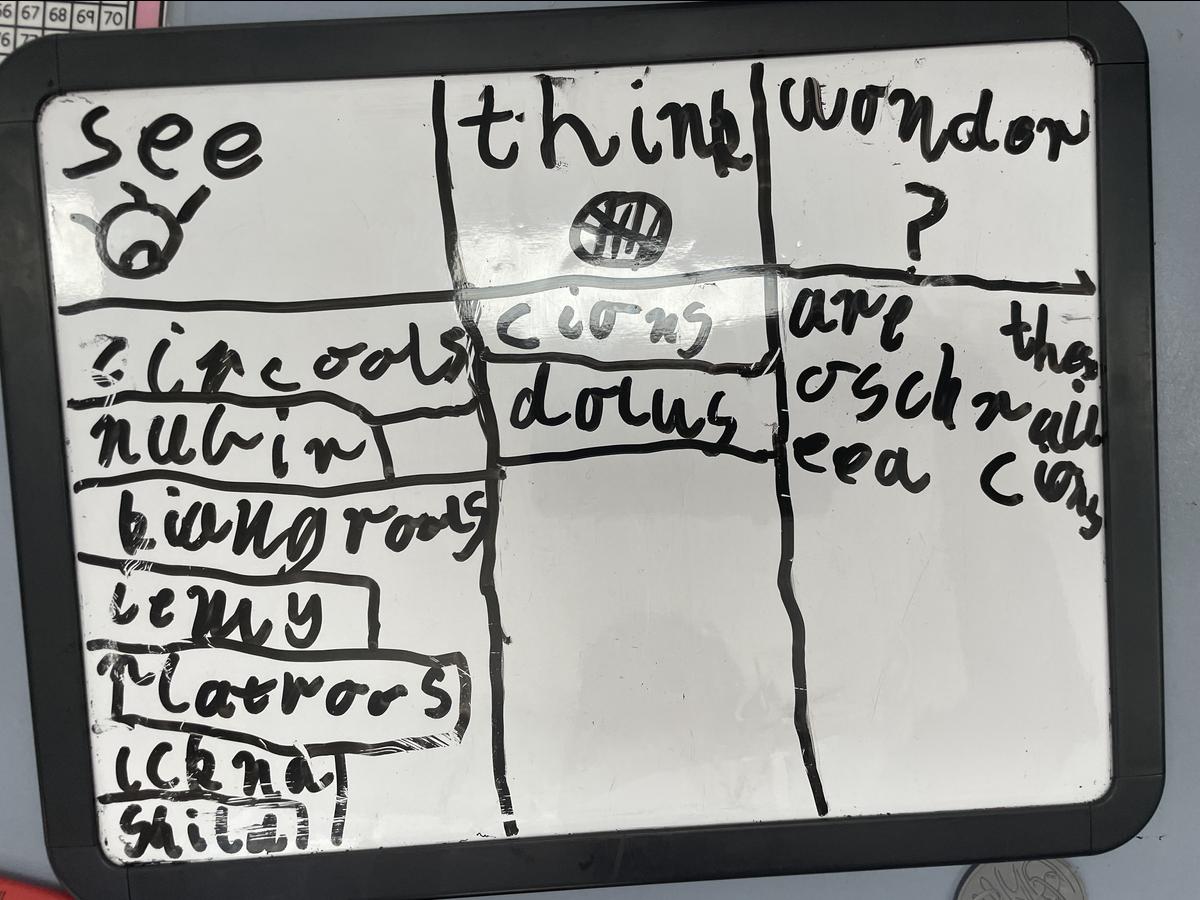 66 67 68 69 70
see
think
wonder
?
circools
nubir
kiangrools
lemy
Platroos
ickna
shilal
cions
dolus
are thes
oschrail
eea cions